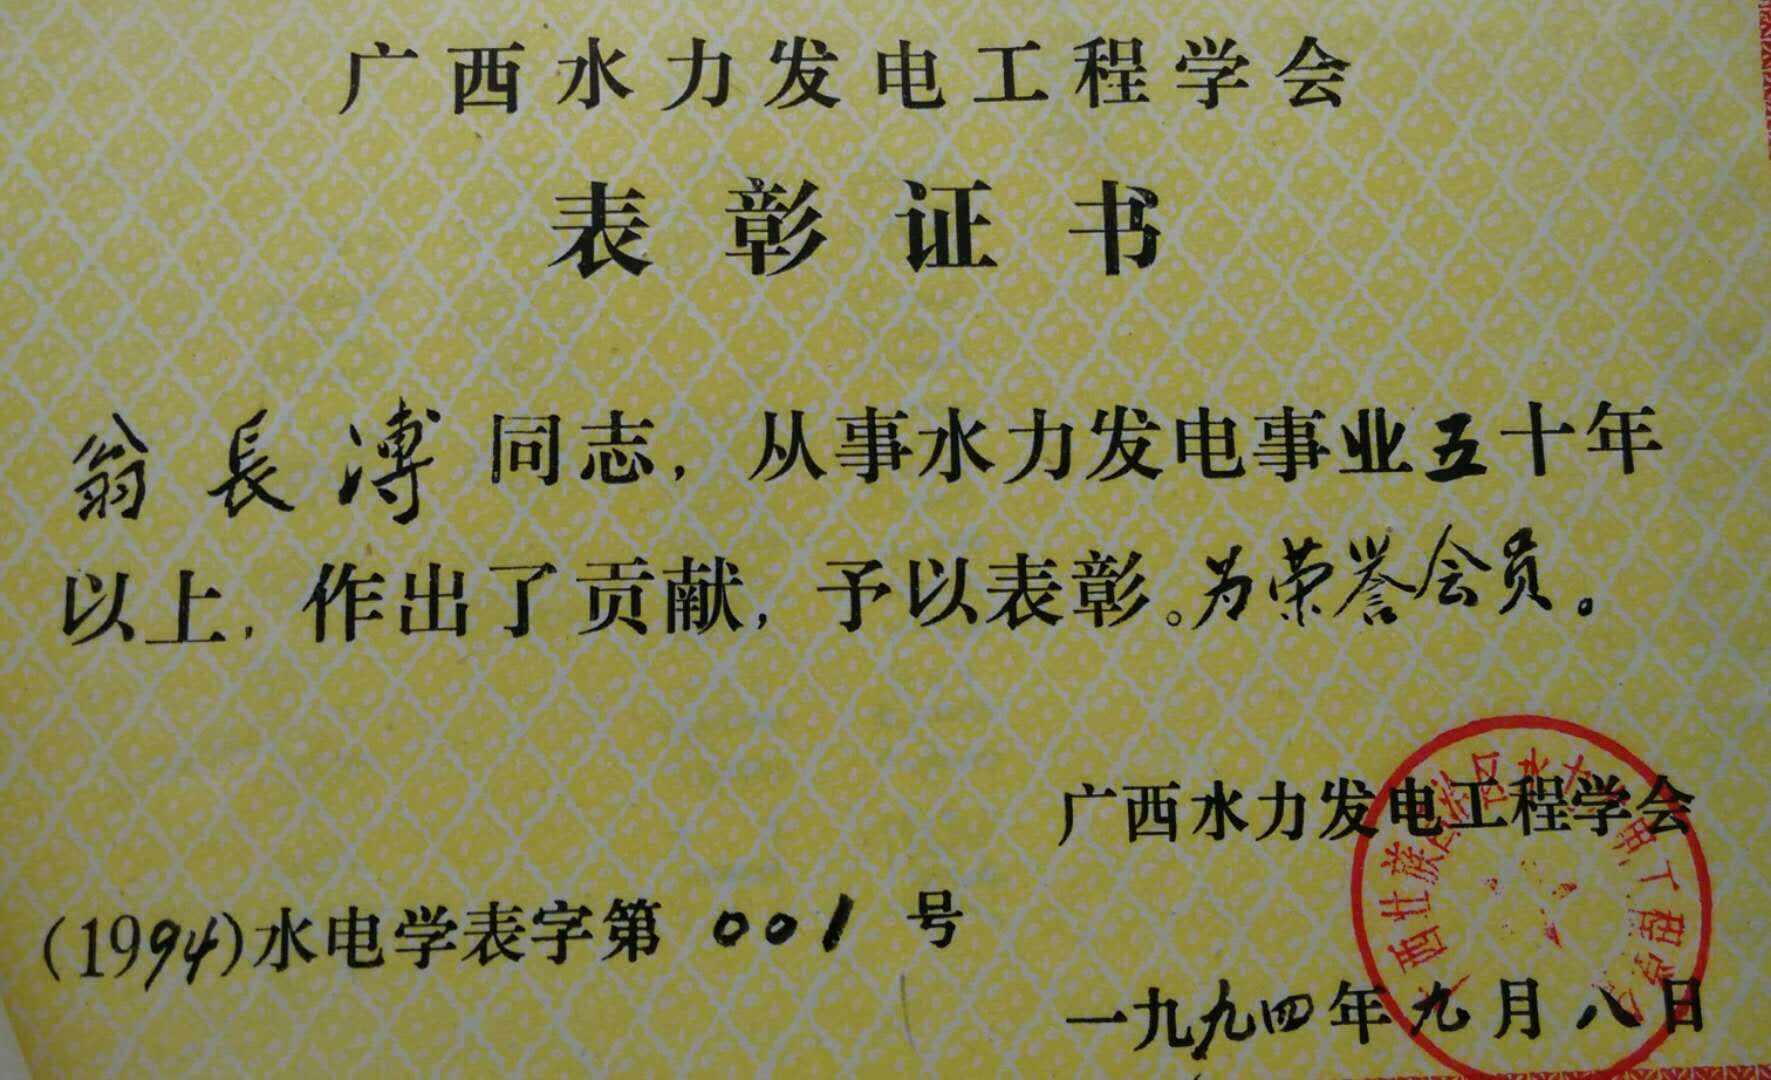 广西水力发电工程学会
表彰证书
翁長溥同志，从事水力发电事业五十年
以上，作出了贡献，予以表彰。为荣誉会员。
广西水力发电工程学会
(1994)水电学表字第 001 号
一九九四年九月八日
西壮族自治区水力 电工程学